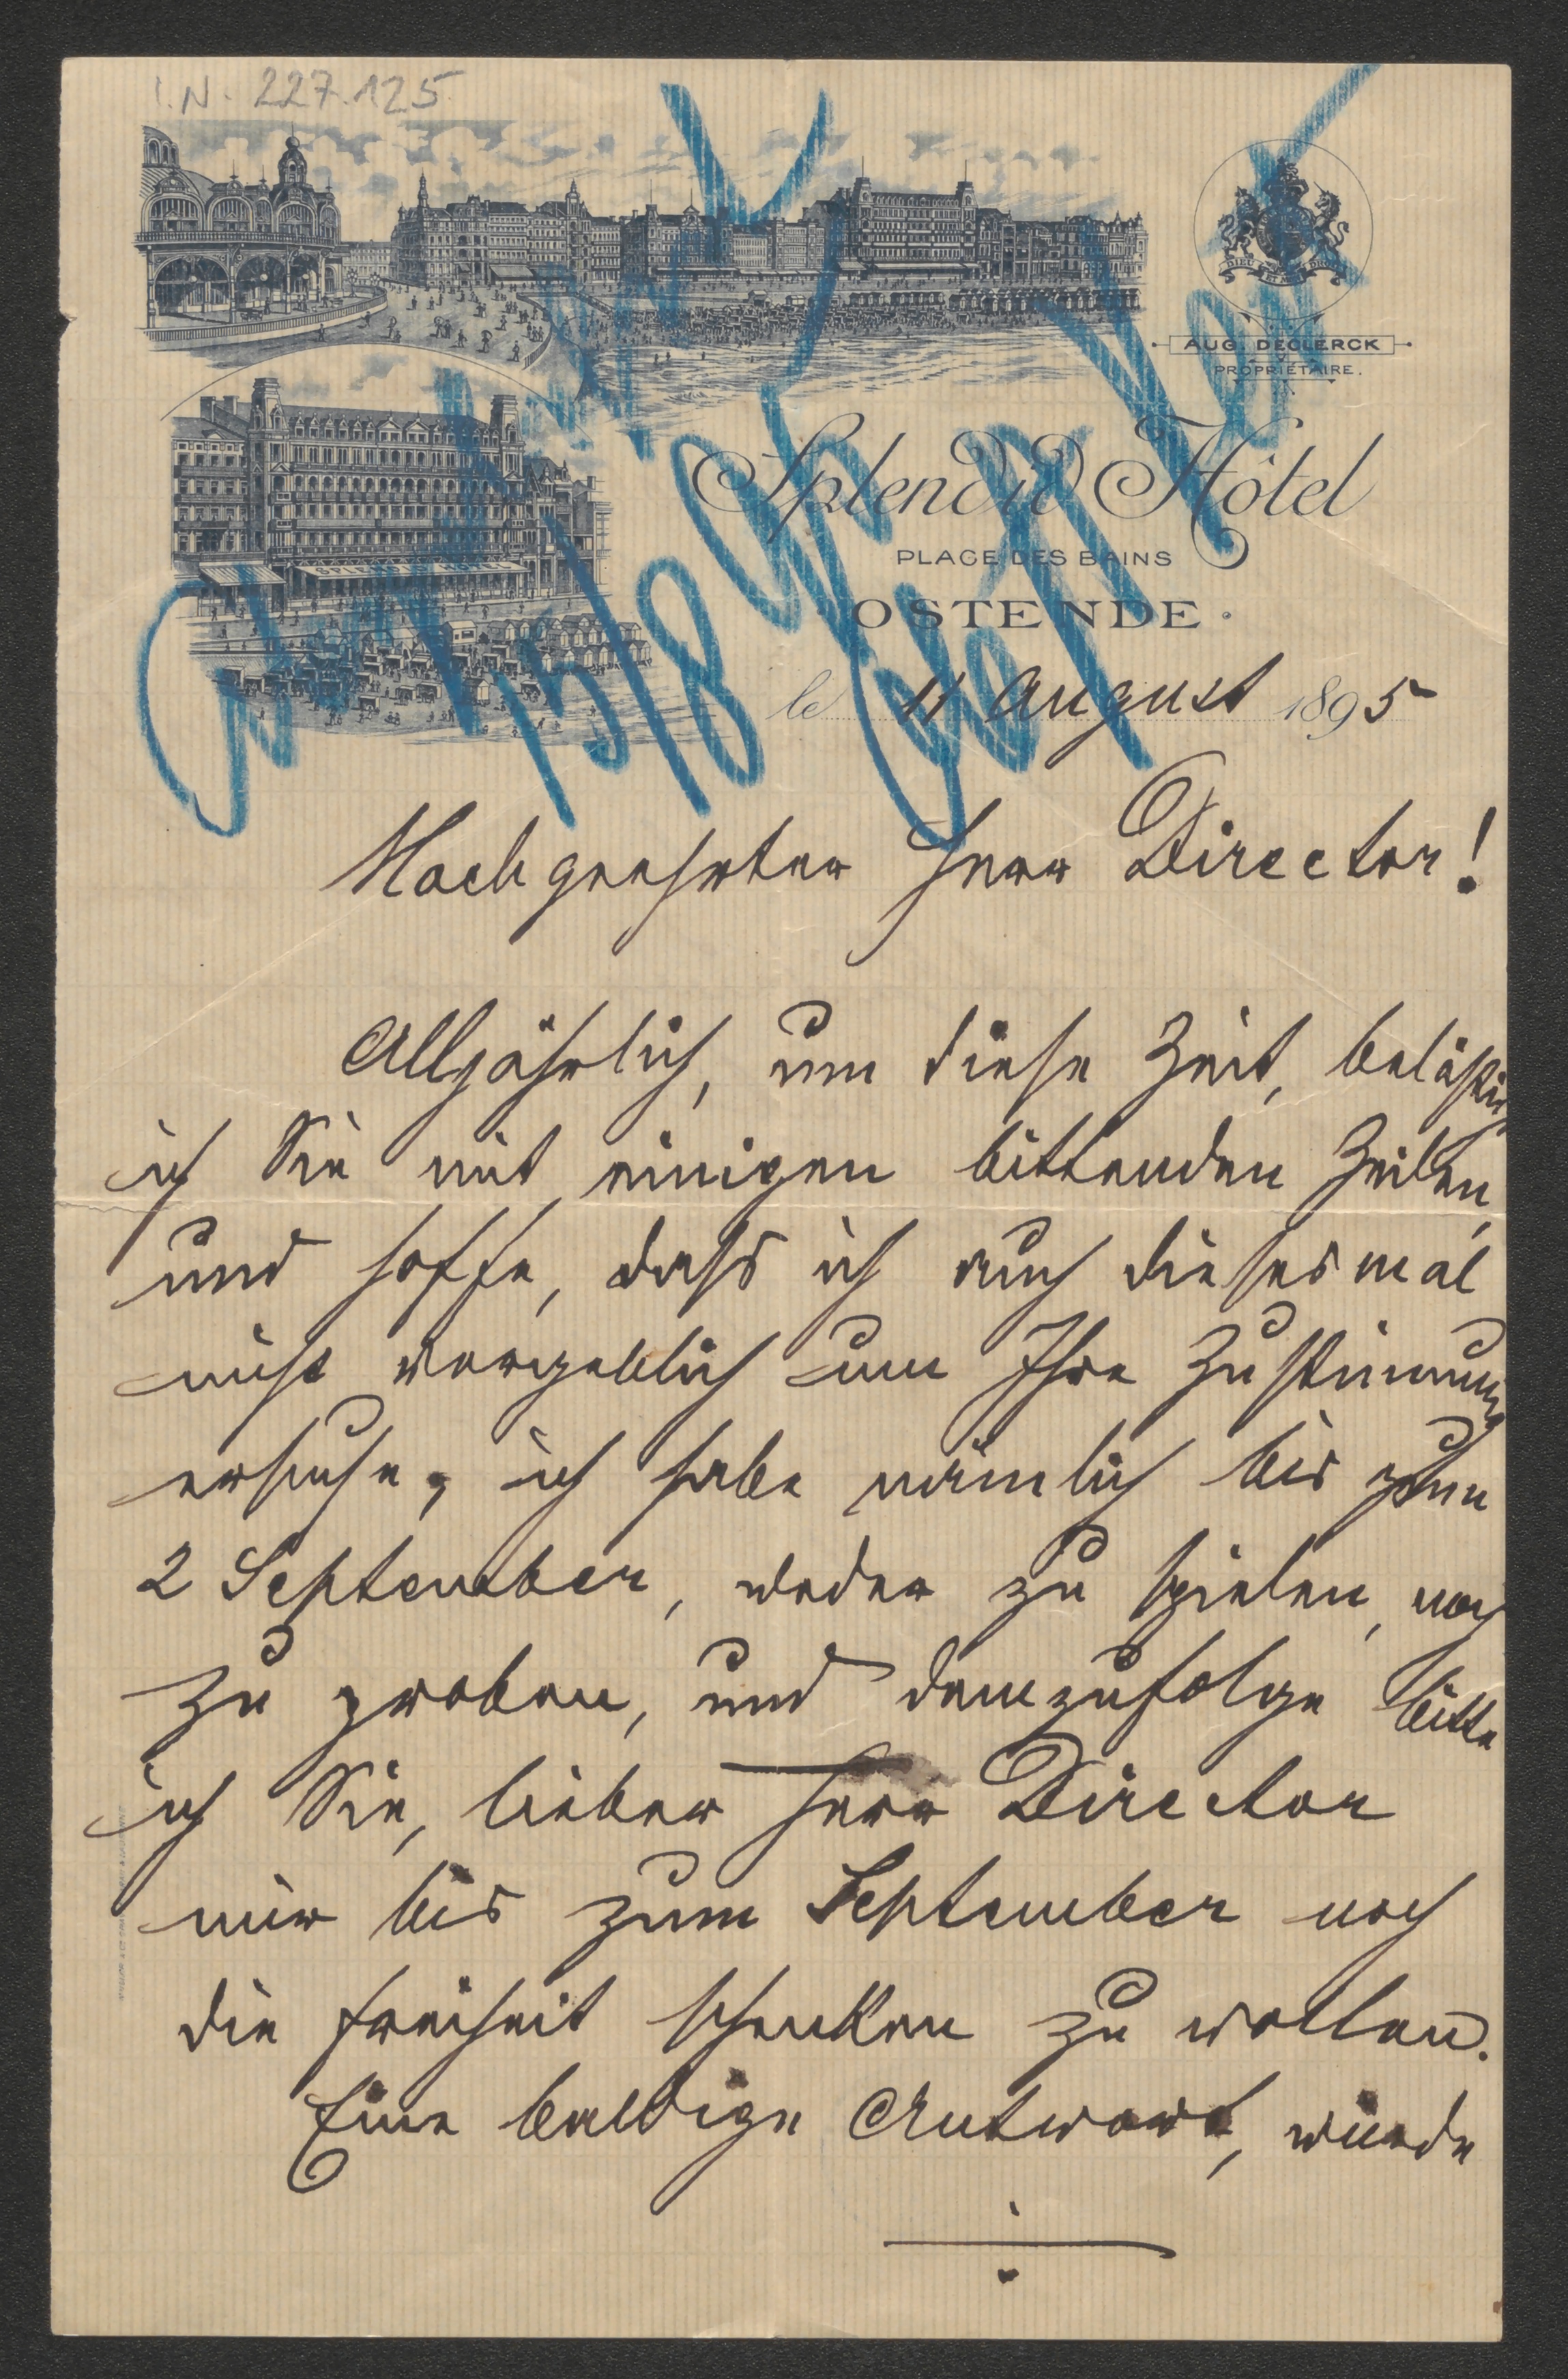 I.N. 227.125
AUG. DECLERCK
PROPRIÉTAIRE.
Splendid Hôtel
PLACE DES BAINS
OSTENDE.
le 11 August 1895
Hochgeehrter Herr Director!
Alljährlich, um diese Zeit, belästige
ich Sie mit einigen bittenden Zeilen,
und hoffe, dass ich auch diesesmal
nicht vergeblich um Ihre Zustimmung
ersuche; ich habe nämlich bis zum
2 September, weder zu spielen, noch
zu proben, und demzufolge bitte
ich Sie, lieber Herr Director
mir bis zum September noch
die Freiheit schenken zu wollen.
Eine baldige Antwort, würde